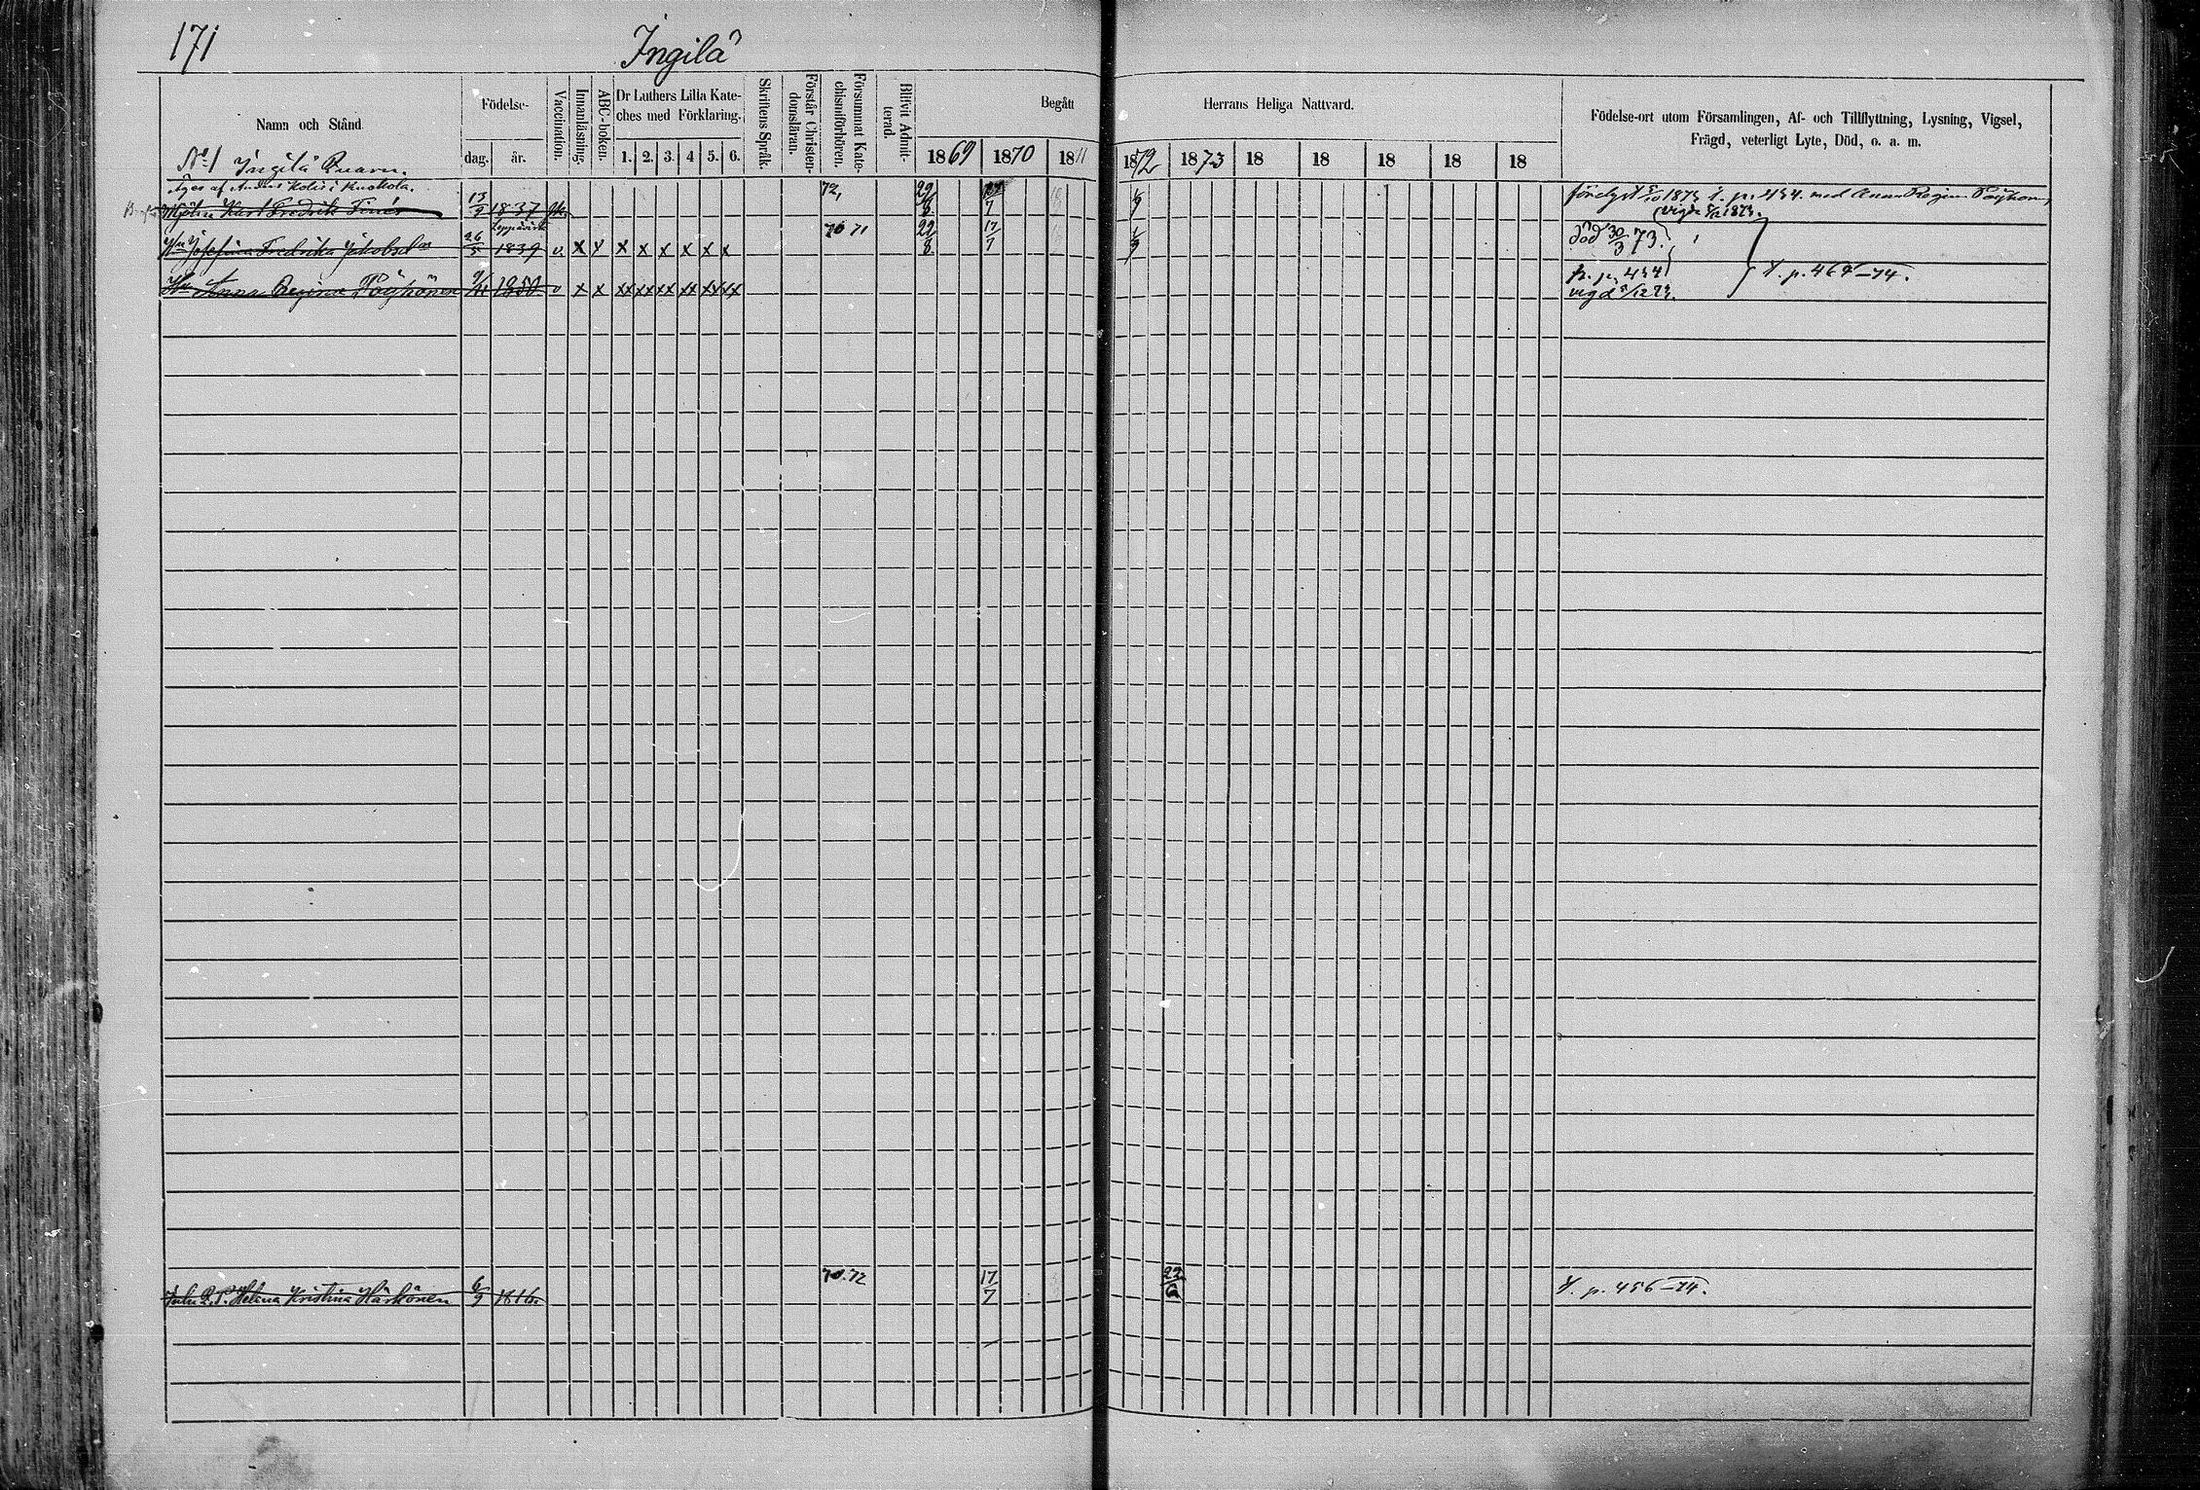 171
Ingilä
Namn och Stånd
Födelse-
dag.
år.
Vaccination.
Innanläsning.
ABC-boken.
Dr Luthers Lilla Kate-
ches med Förklaring.
1. 2. 3. 4. 5. 6.
Skriftens Språk.
Förstår Christen-
domsläran.
Försummat Kate-
chismiförhören.
Blifvit Admit-
terad.
Begått
Herrans Heliga Nattvard.
1869 1870 1871 1872 1873 18 18 18 18 18
Födelse-ort utom Församlingen, Af- och Tillflyttning, Lysning, Vigsel,
Frägd, veterligt Lyte, Död, o. a. m.
No 1 Ingilä Quarn.
Äges af Anders i Kuokola.
Mjöln Karl Fredrik 13/9 1837 72, 22/8 17/7
förelyst 5/10 1873 f. p. 434. med Anna Regina Pöyhönen
vigde 5/12 1873.
Leppävirta
Hu Josefina Fredrika Jakobsd 26/5 1839 v. x x x x x x x x 70 71 22/8 17/7
död 30/3 73.
Hu Anna Regina Pöyhönen 1850 v x x xx xx xx xx xx xx
fr. p. 434
vigd 5/12 73.
X. p. 464–74.
Helena Kristina Härkönen 6/9 1816. 70. 72 17/7 22/6
X. p. 456–74.